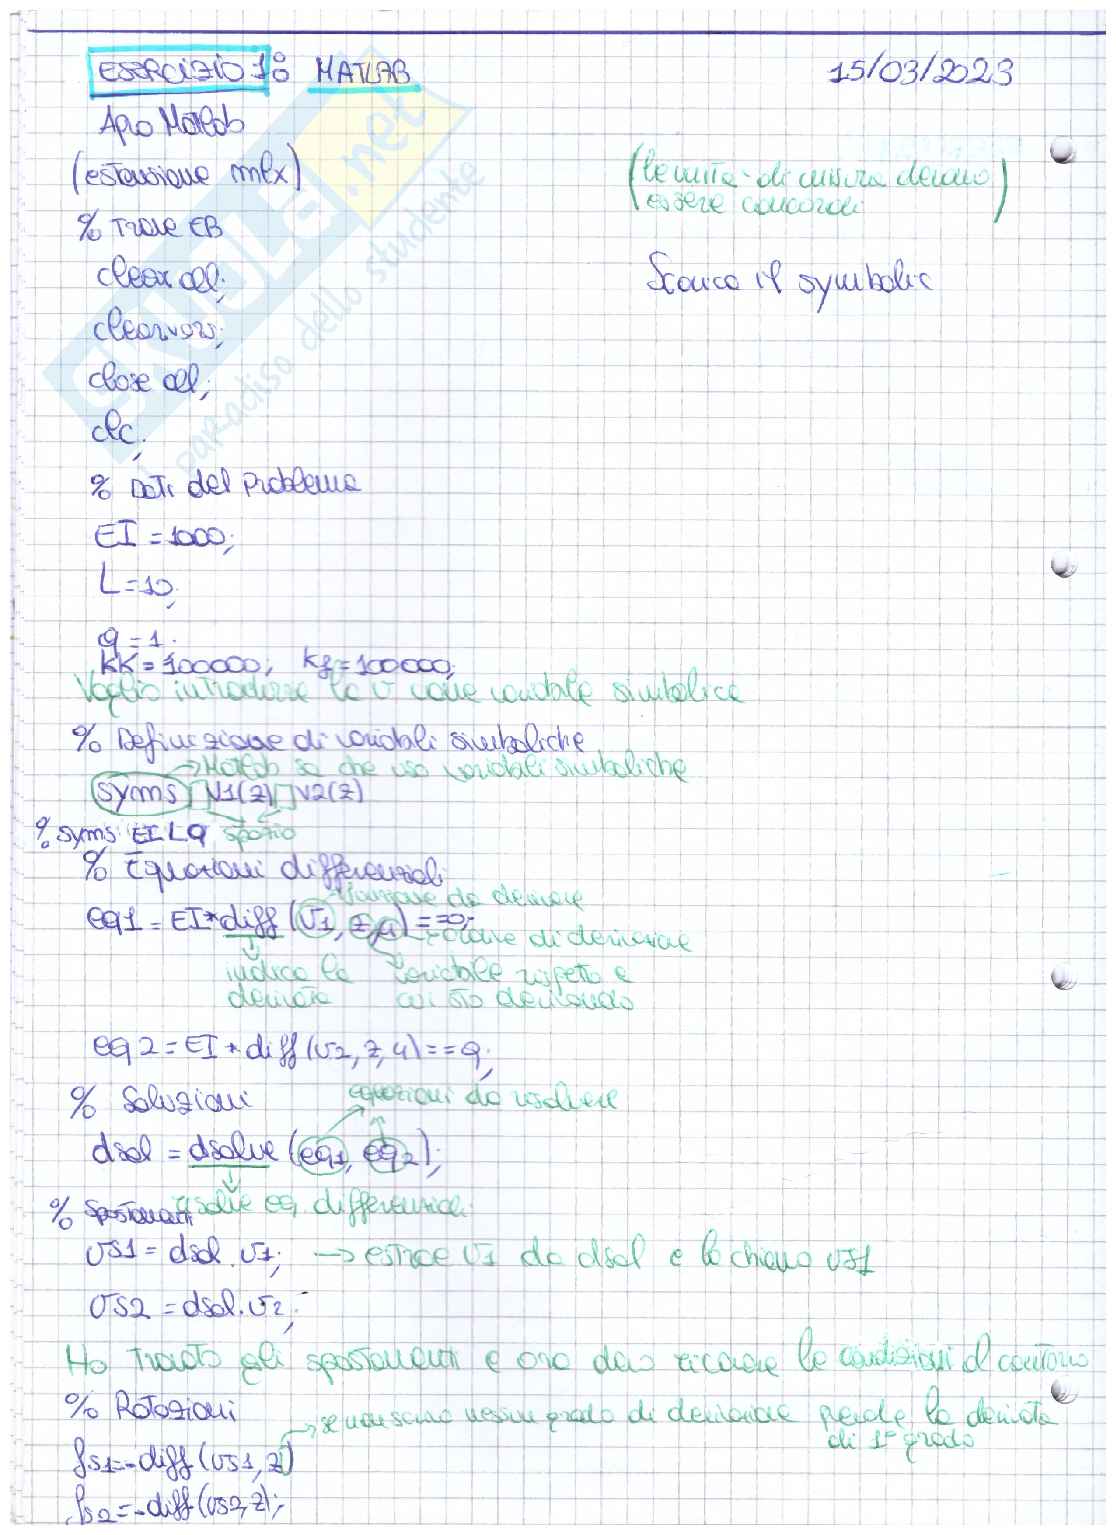 ESERCIZIO 1: MATLAB 15/03/2023
Apro Matlab
(estensione mlx)
(le unità di misura devono
essere concordi)
% Trave EB
clear all;
Scarico il symbolic
clearvars;
close all;
clc;
% Dati del problema
EI = 1000;
L = 10;
q = 1;
kk = 100000; kf = 100000;
Voglio introdurre la v come variabile simbolica
% Definizione di variabili simboliche
→ Matlab sa che uso variabili simboliche
syms v1(z) v2(z)
% syms EI L q spazio
% Equazioni differenziali
funzione da derivare
eq1 = EI*diff(v1, z, 4) == 0;
→ ordine di derivazione
indica la variabile rispetto a
derivata cui sto derivando
eq2 = EI*diff(v2, z, 4) == q;
% Soluzioni equazioni da risolvere
dsol = dsolve(eq1, eq2);
% Spostamenti risolve eq. differenziali
vs1 = dsol.v1; → estrae v1 da dsol e lo chiamo vs1
vs2 = dsol.v2;
Ho trovato gli spostamenti e ora devo ricavare le condizioni al contorno
% Rotazioni
→ se non scrivo nessun grado di derivazione prende la derivata
di 1° grado
fs1 = -diff(vs1, z)
fs2 = -diff(vs2, z);
SKUOLA.net
il paradiso dello studente